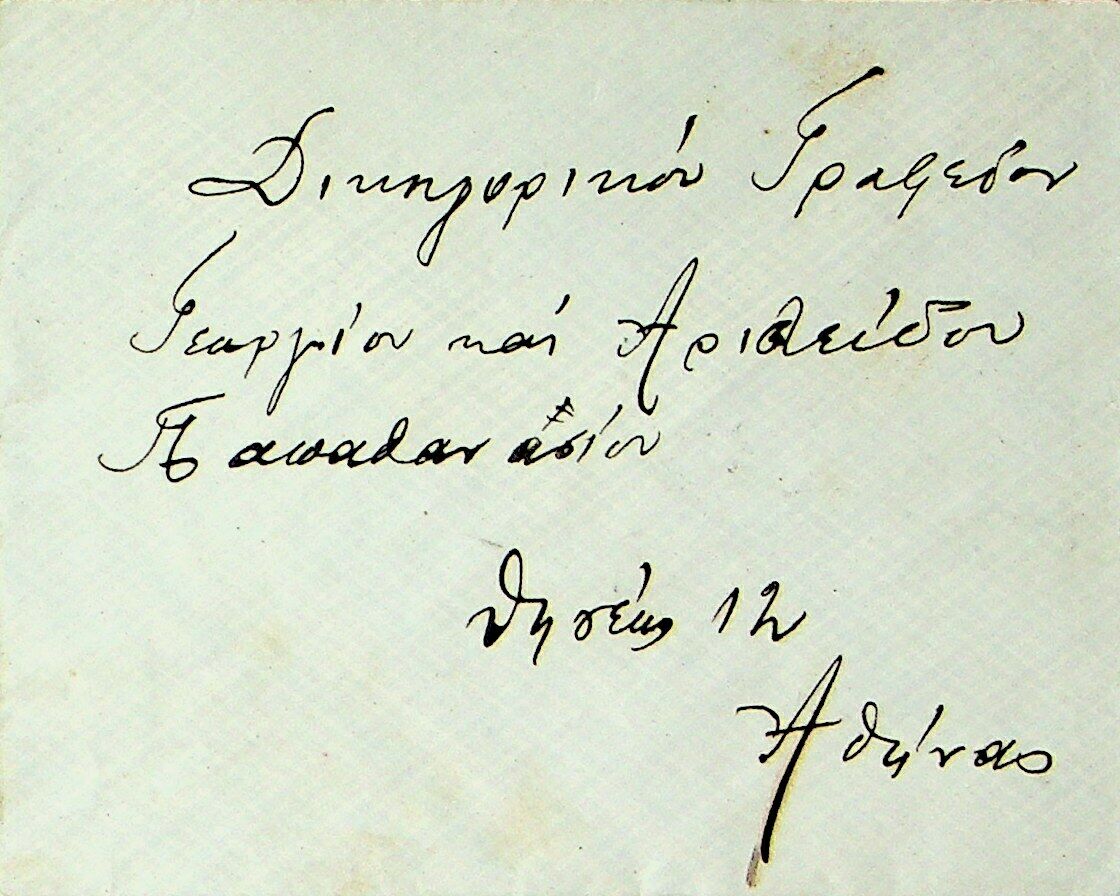 Δικηγορικόν Γραφεῖον
Γεωργίου καί Αριστείδου
Παπαθανασίου
Θησέως 12
Αθήνας